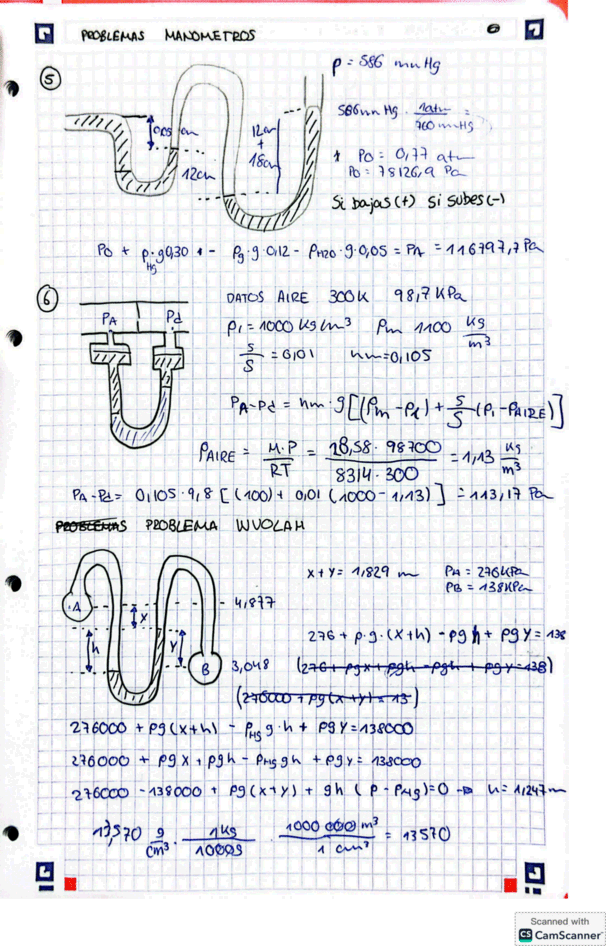 PROBLEMAS MANOMETROS
6
5
P = 586 mmHg
0,05 cm
12cm
12cm
+
18cm
586 mmHg · 1atm / 760 mmHg =
PO = 0,77 atm
PO = 78126,9 Pa
Si bajas (+) Si subes (-)
PO + ρHg·g0,30 - ρg·g·0,12 - ρH2O·g·0,05 = PA = 116797,7 Pa
6
PA Pd
DATOS AIRE 300K 98,7 KPa
ρ1 = 1000 Kg/m³ ρm 1100 Kg/m³
s/S = 0,01 hm = 0,105
PA-Pd = hm · g [(ρm - ρ1) + s/S (ρ1 - ρAIRE)]
ρAIRE = M·P/RT = 28,58 · 98700 / 8314 · 300 = 1,13 Kg/m³
PA-Pd = 0,105 · 9,8 [(100) + 0,01 (1000 - 1,13)] = 113,17 Pa
PROBLEMAS PROBLEMA WUOLAH
A
x
h
y
B
4,877
3,048
x+y = 1,829 m PA = 276KPa
PB = 138KPa
276 + ρ·g·(x+h) - ρgh + ρgy = 138
(276 + ρgx + ρgh - ρgh + ρgy = 138)
(276000 + ρg(x+y) = 13)
276000 + ρg(x+h) - ρHg g·h + ρgy = 138000
276000 + ρgx + ρgh - ρHg gh + ρgy = 138000
276000 - 138000 + ρg(x+y) + gh (ρ - ρHg) = 0 → h = 1,247m
13,570 g/cm³ · 1Kg/1000g · 1000 000 m³ / 1 cm³ = 13570
Scanned with
CS CamScanner